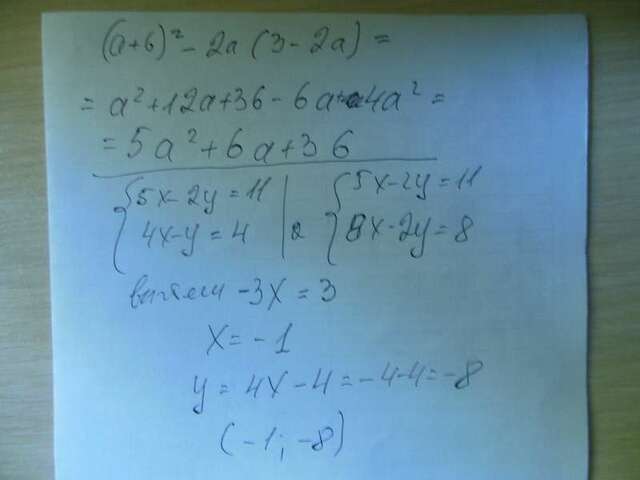 (a+6)² - 2a (3 - 2a) =
= a² + 12a + 36 - 6a + 4a² =
= 5a² + 6a + 36
{5x - 2y = 11 | {5x - 2y = 11
{4x - y = 4 | 2 {8x - 2y = 8
вычтем -3x = 3
x = -1
y = 4x - 4 = -4 - 4 = -8
(-1; -8)